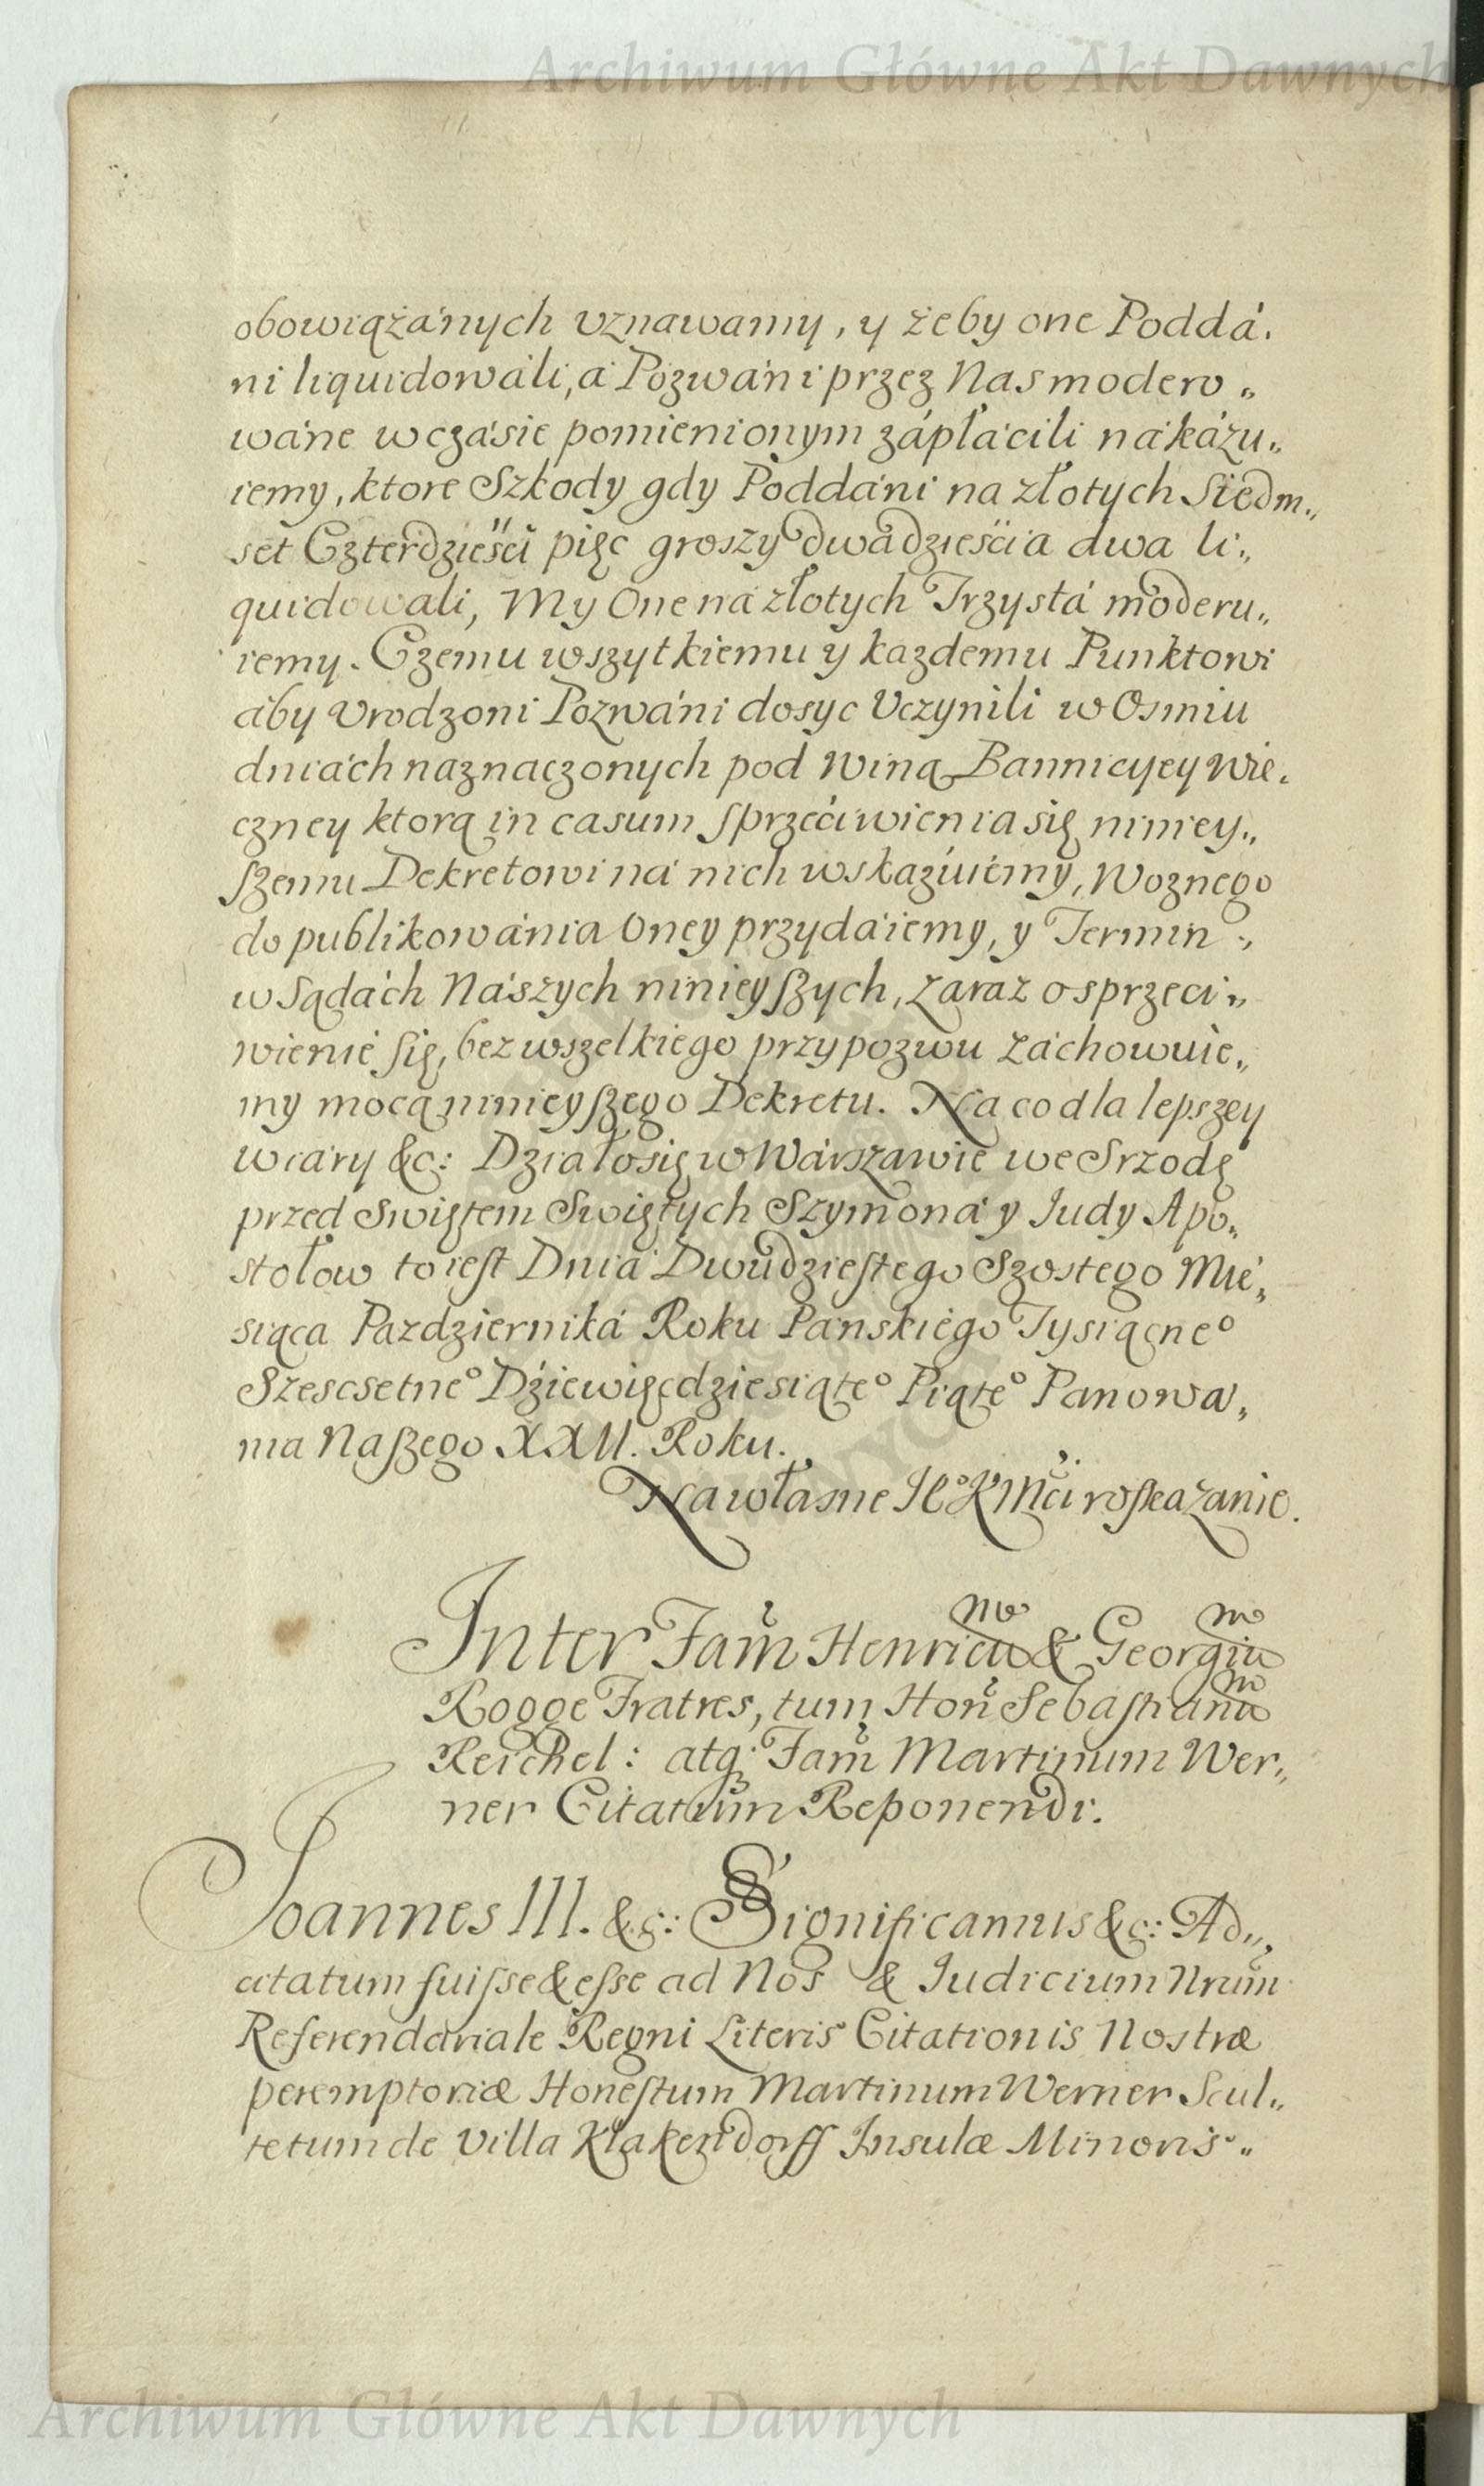 Archiwum Główne Akt Dawnych
obowiązánych vznawamy, y żeby one Poddá.
ni liquidowáli, á Pozwáni przez Nas modero„
wáne w czásie pomienionym zápłácili nákázu„
iemy, ktore Szkody gdy Poddáni na złotych Siedm„
set Czterdzieśći pięc groszy dwadzieśćia dwa li„
quidowali, My One ná złotych Trzystá moderu„
iemy. Czemu wszytkiemu y kazdemu Punktowi
áby Vrodzoni Pozwáni dosyc Vczynili w Osmiu
dniách naznaczonych pod winą Bannicyey Wie„
czney ktorą in casum sprzećiwienia się niniey„
szemu Dekretowi ná nich wskazúiémy, Woznego
do publikowánia Oney przydáiemy, y Termin„
w Sądách Nászych ninieyszych, zaraz o sprzeci„
wienié się, bez wszelkiego przypozwu záchowuie„
my mocą ninieyszego Dekretu. Na co dla lepszey
wiáry &c: Działosię w Wárszawie we Srzodę
przed Swiętem Swiętych Szymoná y Judy Apo„
stołow to iest Dniá Dwudziestego Szostego Mie„
siąca Pazdzierniká Roku Panskiégo Tysiącneº
Szescsetneº Dźiewięcdziesiąteº Piąteº Panowa„
nia Naszego XXII. Roku.
Na własne JKº Mći roskazanie.
Inter Fam̃ Henricũ & Georgiũ
Rogge Fratres, tum Hoñ Sebastianũ
Reichel: atq; Fam̃ Martinum Wer„
ner Citatum Reponendi.
Joannes III. &c: Significamus &c: Ad„
citatum fuisse & esse ad Nos & Judicium Nrum̃
Referendariale Regni Literis Citationis Nostræ
peremptoriæ Honestum Martinum Werner Scul„
tetum de Villa Klakendorff Insulæ Minoris„
Archiwum Główne Akt Dawnych